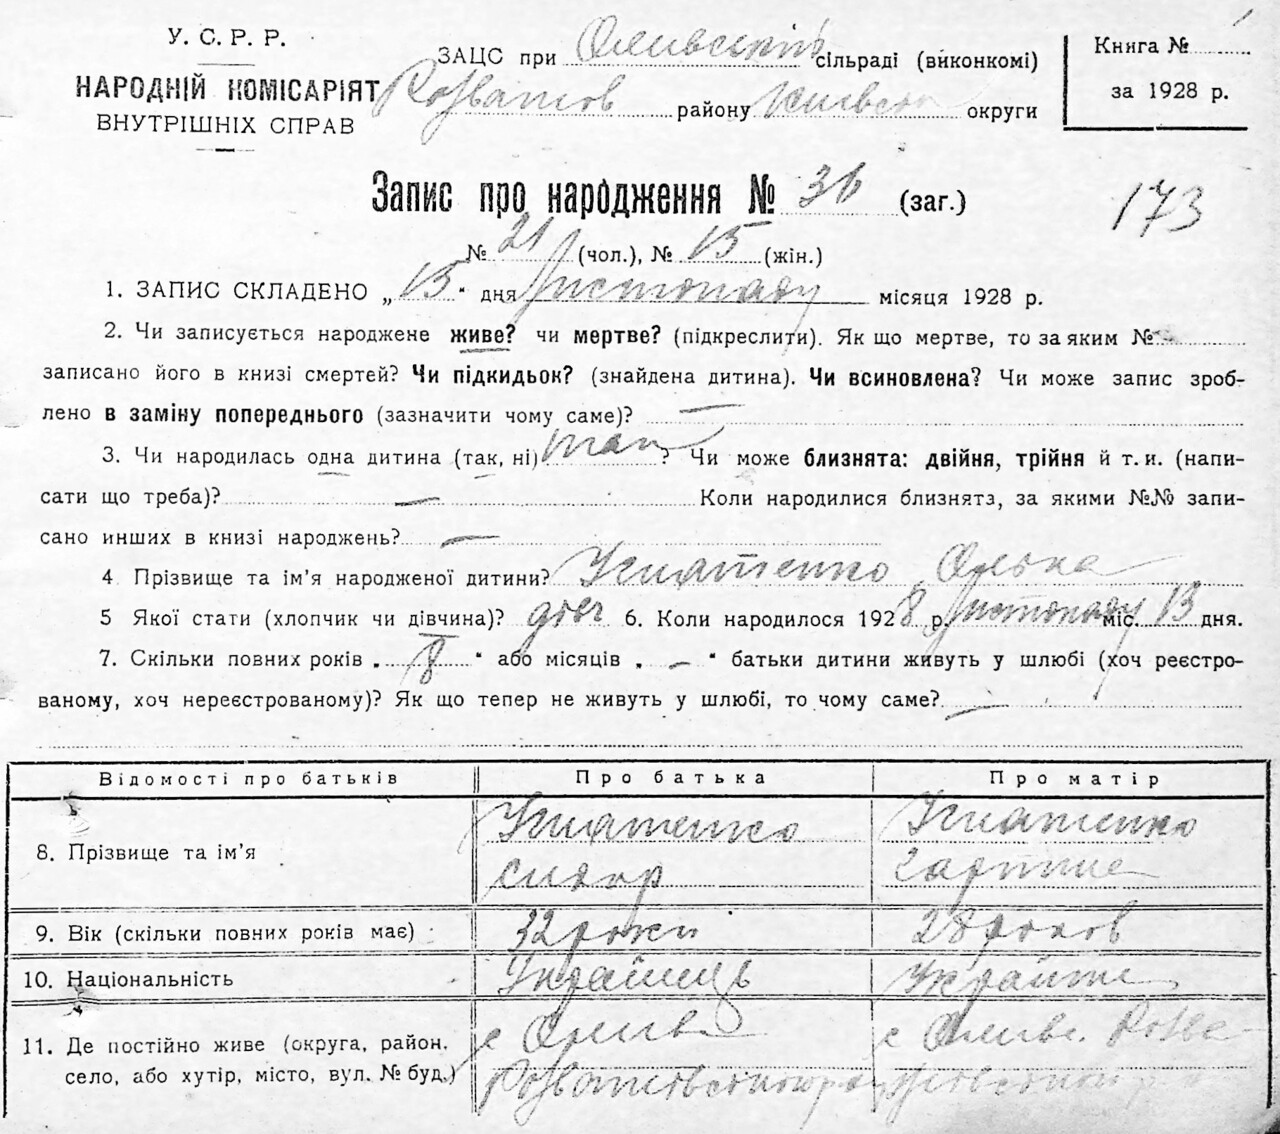 У. С. Р. Р.
НАРОДНІЙ КОМІСАРІЯТ
ВНУТРІШНІХ СПРАВ
ЗАЦС при Оливській сільраді (виконкомі)
Розважів району Київсь округи
Книга №
за 1928 р.
Запис про народження № 36 (заг.)
173
№ 21 (чол.), № 15 (жін.)
1. ЗАПИС СКЛАДЕНО „15“ дня Листопаду місяця 1928 р.
2. Чи записується народжене живе? чи мертве? (підкреслити). Як що мертве, то за яким № -
записано його в книзі смертей? Чи підкидьок? (знайдена дитина). Чи всиновлена? Чи може запис зроб-
лено в заміну попереднього (зазначити чому саме)? —
3. Чи народилась одна дитина (так, ні) так ? Чи може близнята: двійня, трійня й т. и. (напи-
сати що треба)? — Коли народилися близнята, за якими №№ запи-
сано инших в книзі народжень? —
4 Прізвище та ім'я народженої дитини? Ігнатенко Олька
5 Якої стати (хлопчик чи дівчина)? дівч 6. Коли народилося 1928 р. Листопаду міс. 13 дня.
7. Скільки повних років „ 8 “ або місяців „ — “ батьки дитини живуть у шлюбі (хоч реєстро-
ваному, хоч нереєстрованому)? Як що тепер не живуть у шлюбі, то чому саме? —
Відомості про батьків Про батька Про матір
8. Прізвище та ім'я Ігнатенко Сидор Ігнатенко
9. Вік (скільки повних років має) 32 роки 28 роков
10. Національність Українець Україн
11. Де постійно живе (округа, район, село, або хутір, місто, вул. № буд.) с Олив с Олив. Розва